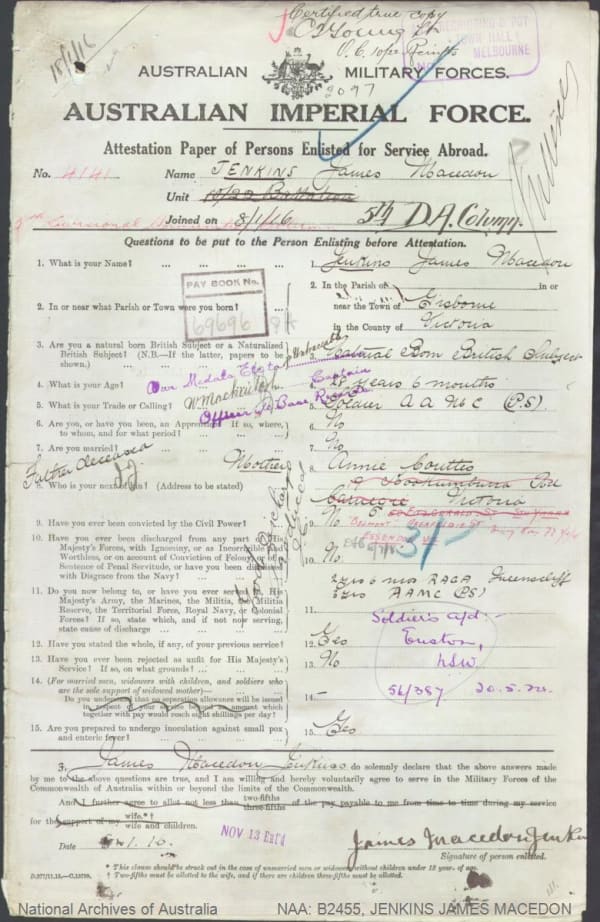 Certified true copy
C Young Lt
O.C. 10th Reinfts
18/1/16
TOWN HALL
MELBOURNE
AUSTRALIAN MILITARY FORCES.
2097
AUSTRALIAN IMPERIAL FORCE.
Attestation Paper of Persons Enlisted for Service Abroad.
No. 4141 Name JENKINS James Macedon
Unit 10/22 Battalion
Joined on 8/1/16 5th D.A. Column
Questions to be put to the Person Enlisting before Attestation.
1. What is your Name? ... 1. Jenkins James Macedon
PAY BOOK No.
69696
2. In or near what Parish or Town were you born? ... 2. In the Parish of in or
near the Town of Gisborne
in the County of Victoria
3. Are you a natural born British Subject or a Naturalized British Subject? (N.B.—If the latter, papers to be shown.) ... 3. Natural Born British Subject
War Medals
Captain
Officer i/c Base Records
4. What is your Age? ... 4. 28 years 6 months
5. What is your Trade or Calling? ... 5. Soldier A A M C (P.S).
6. Are you, or have you been, an Apprentice? If so, where, to whom, and for what period? ... 6. No
7. Are you married? ... 7. No
Father deceased
Mother
8. Who is your next of kin? (Address to be stated) 8. Annie Couttes
Carnegie Victoria
9. Have you ever been convicted by the Civil Power? ... 9. No
10. Have you ever been discharged from any part of His Majesty's Forces, with Ignominy, or as Incorrigible and Worthless, or on account of Conviction of Felony, or of a Sentence of Penal Servitude, or have you been dismissed with Disgrace from the Navy? 10.
11. Do you now belong to, or have you ever served in, His Majesty's Army, the Marines, the Militia, the Militia Reserve, the Territorial Force, Royal Navy, or Colonial Forces? If so, state which, and if not now serving, state cause of discharge ... 11.
2 yrs 6 mos RAGA Queenscliff
AAMC (PS)
Soldier's a/d:-
Euston,
NSW
56/387 20.5.20.
12. Have you stated the whole, if any, of your previous service? 12. Yes
13. Have you ever been rejected as unfit for His Majesty's Service? If so, on what grounds? ... 13. No
14. (For married men, widowers with children, and soldiers who are the sole support of widowed mother)—
Do you understand that no separation allowance will be issued in respect of your service beyond an amount which together with pay would reach eight shillings per day? 14. —
15. Are you prepared to undergo inoculation against small pox and enteric fever? ... 15. Yes
I, James Macedon Jenkins do solemnly declare that the above answers made
by me to the above questions are true, and I am willing and hereby voluntarily agree to serve in the Military Forces of the
Commonwealth of Australia within or beyond the limits of the Commonwealth.
And I further agree to allot not less than two-fifths three-fifths of the pay payable to me from time to time during my service
for the support of my wife.*† wife and children.
NOV 13
Date 8.1.16. James Macedon Jenkins
Signature of person enlisted.
* This clause should be struck out in the case of unmarried men or widowers without children under 18 years of age.
† Two-fifths must be allotted to the wife, and if there are children three-fifths must be allotted.
National Archives of Australia NAA: B2455, JENKINS JAMES MACEDON